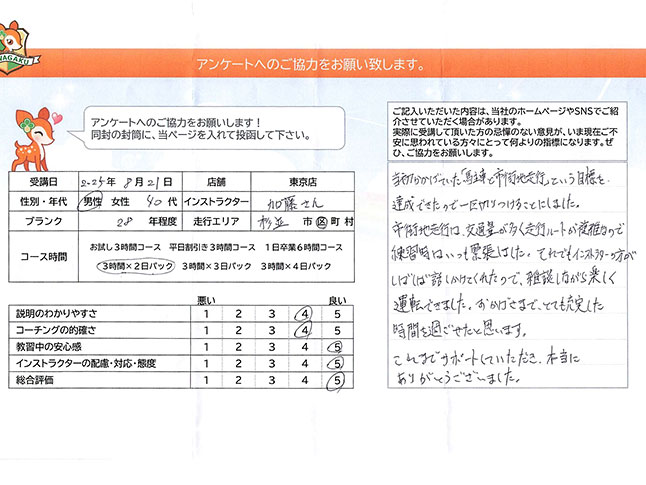 WAGAKU
アンケートへのご協力をお願い致します。
アンケートへのご協力をお願いします！
同封の封筒に、当ページを入れて投函して下さい。
受講日 2025年 8月21日 店舗 東京店
性別・年代 男性 女性 40代 インストラクター 加藤さん
ブランク 28 年程度 走行エリア 杉並 市 区 町 村
コース時間
お試し3時間コース 平日割引き3時間コース 1日卒業6時間コース
3時間×2日パック 3時間×3日パック 3時間×4日パック
悪い 良い
説明のわかりやすさ 1 2 3 4 5
コーチングの的確さ 1 2 3 4 5
教習中の安心感 1 2 3 4 5
インストラクターの配慮・対応・態度 1 2 3 4 5
総合評価 1 2 3 4 5
ご記入いただいた内容は、当社のホームページやSNSでご紹
介させていただく場合があります。
実際に受講して頂いた方の忌憚のない意見が、いま現在ご不
安に思われている方々にとって何よりの指標になります。ぜ
ひ、ご協力をお願いします。
当初かかげていた「高速と市街地走行」という目標を
達成できたので一区切りつけることにしました。
市街地走行は、交通量が多く走行ルートが複雑なので
練習時はいつも緊張しました。それでもインストラクターの方が
しばしば話しかけてくれたので、雑談しながら楽しく
運転できました。おかげさまで、とても充実した
時間を過ごせたと思います。
これまでサポートしていただき、本当に
ありがとうございました。